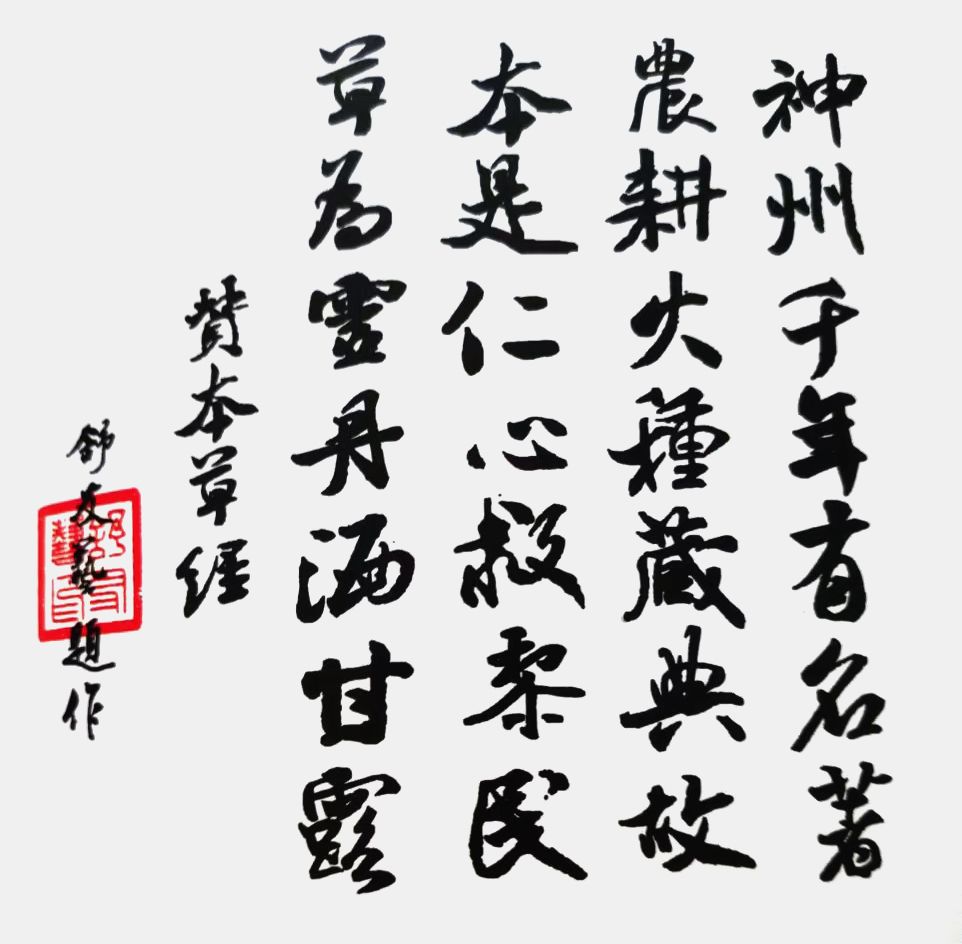 神州千年有名著
農耕火種藏典故
本是仁心救黎民
草為靈丹洒甘露
贊本草經
舒友藝題作
舒友藝印